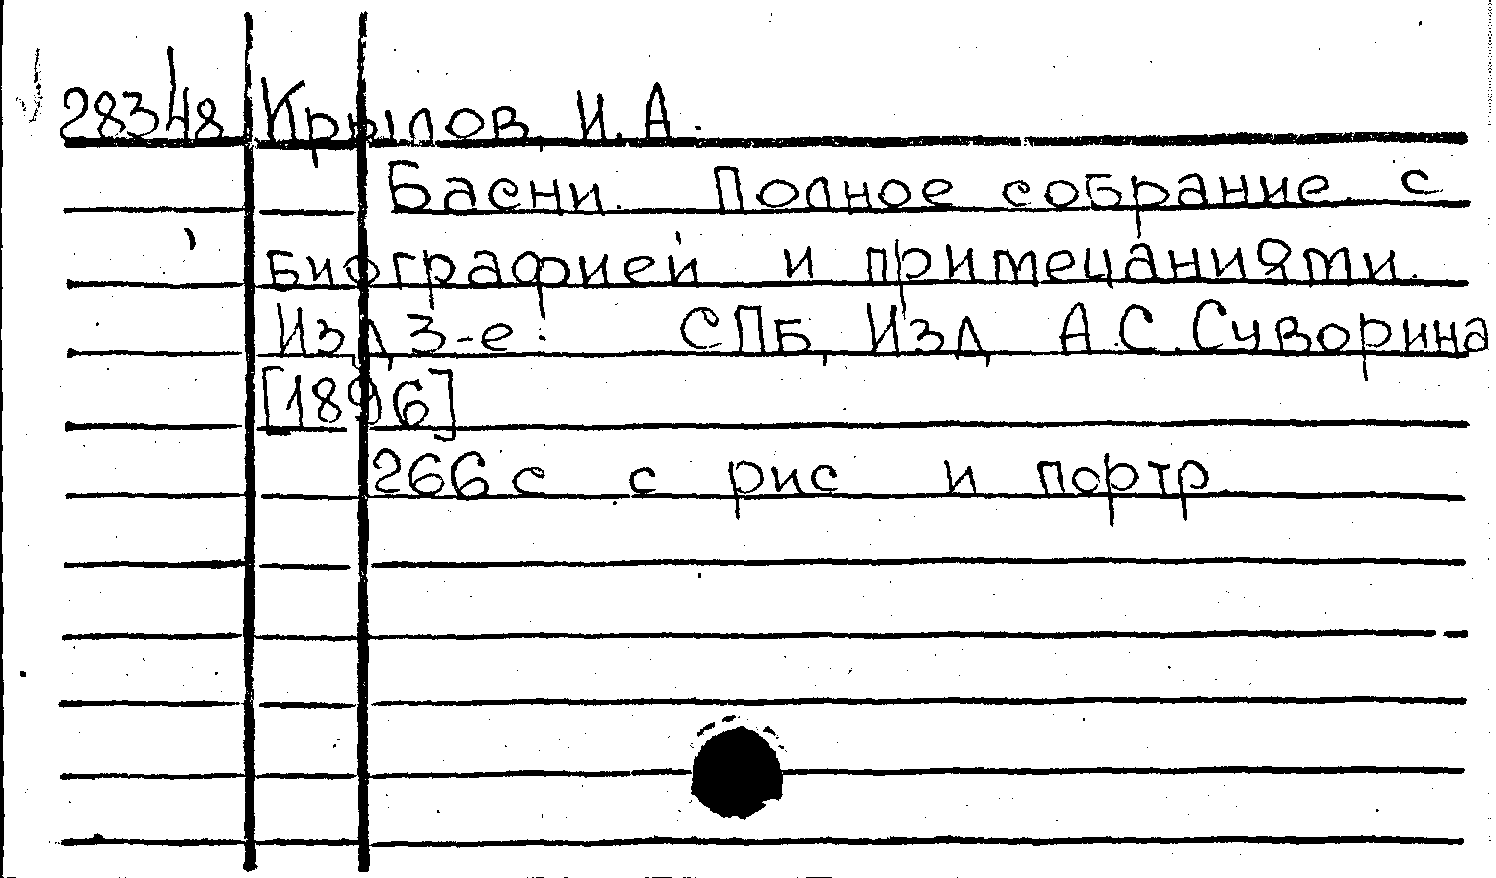 28348 Крылов И. А.
Басни. Полное собрание с
биографией и примечаниями.
Изд 3-е. СПБ, Изд А.С.Суворина
[1896]
266 с с рис и портр